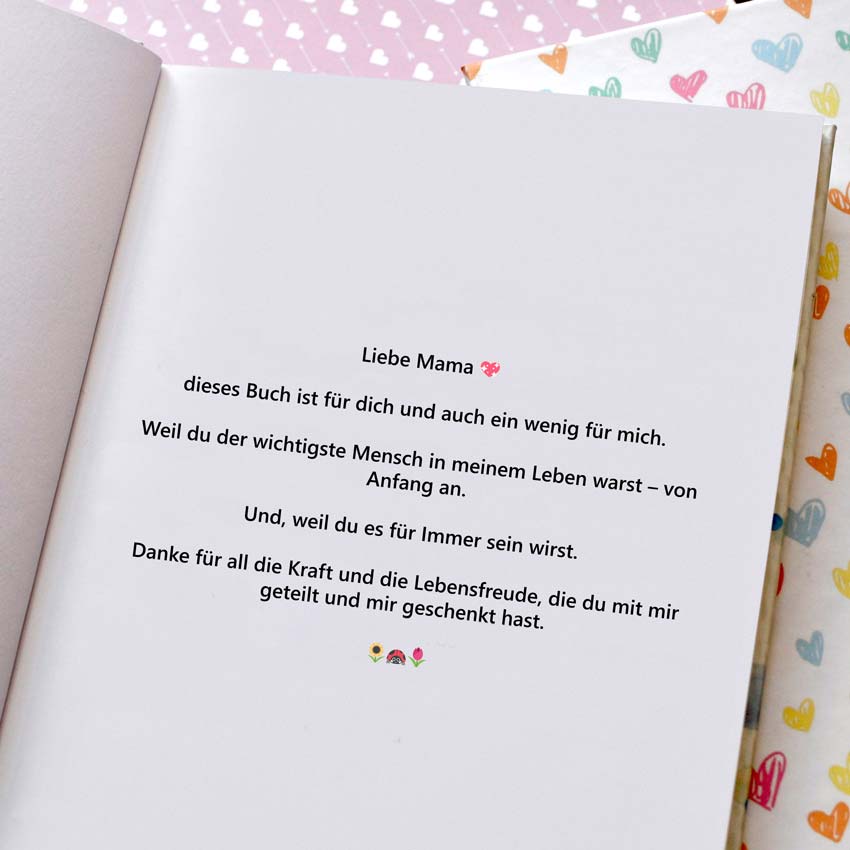 Liebe Mama 💖
dieses Buch ist für dich und auch ein wenig für mich.
Weil du der wichtigste Mensch in meinem Leben warst – von
Anfang an.
Und, weil du es für Immer sein wirst.
Danke für all die Kraft und die Lebensfreude, die du mit mir
geteilt und mir geschenkt hast.
🌻🐞🌷